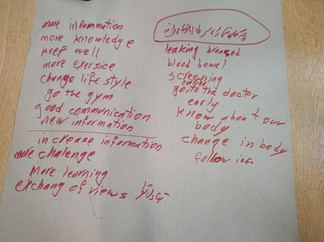 more information
more knowledge
keep well
more exersice
change life style
go the gym
good communication
new information
increase information
more challenge
More learning
exchang of views
leaking breased
blood bowel
screening
go to the doctor
early
know about our
body
change in body
follow